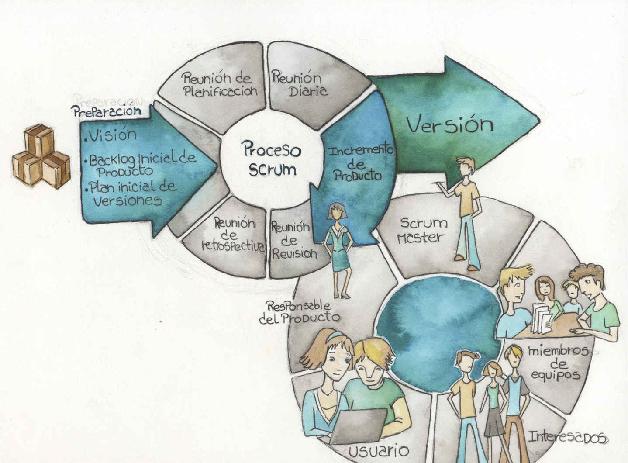 Preparación
• Visión
• Backlog Inicial de
Producto
• Plan inicial de
Versiones
Reunión de
Planificación
Reunión
Diaria
Proceso
Scrum
Incremento
de
Producto
Versión
Reunión
de
retrospectiva
Reunión
de
Revisión
Scrum
Master
Responsable
del Producto
miembros
de
equipos
Usuario
Interesados